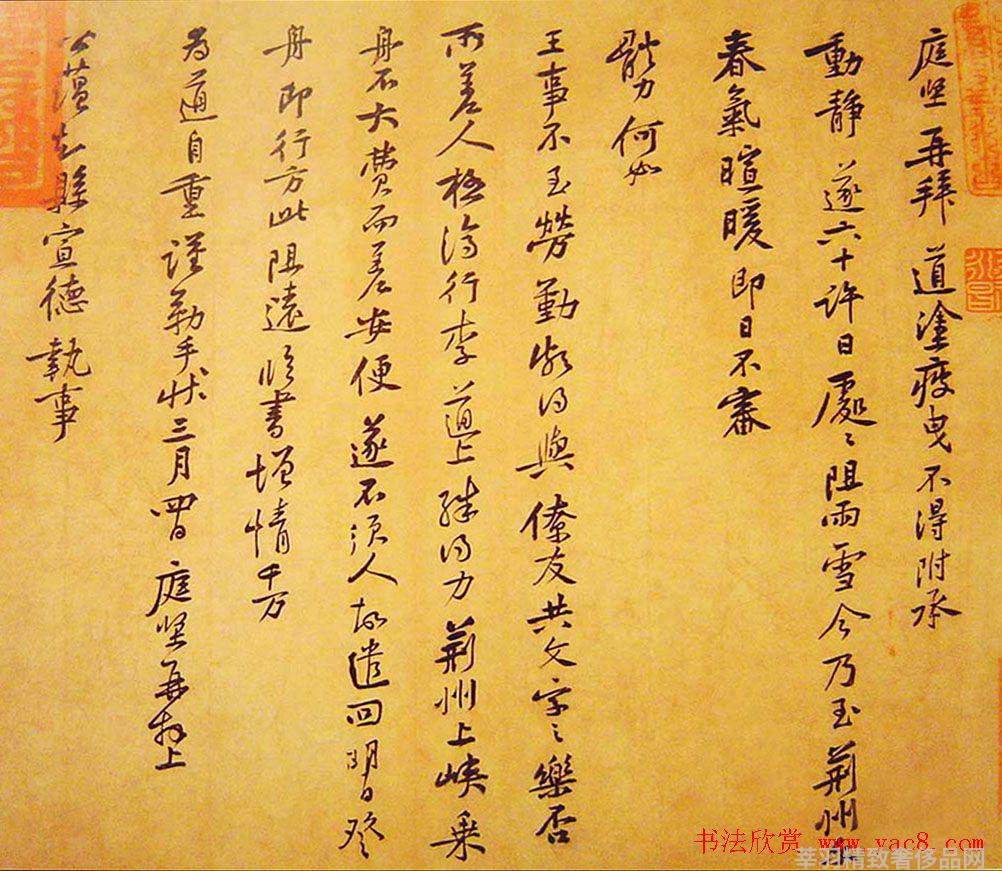 庭坚再拜道塗疲曳不得附承
動静遂六十許日處〻阻雨雪今乃至荆州耳
春氣暄暖即日不審
體力何如
王事不至勞勤頗得與僚友共文字之樂否
所差人極濟行李道上殊得力荆州上峡乗
舟不大費而差安便遂不須人故遣回明日登
舟即行方此阻遠臨書增情千万
為道自重謹勒手状三月四日庭坚再拜上
公蕴知縣宣德執事
书法欣赏 www.yac8.com
莘羽精致奢侈品网